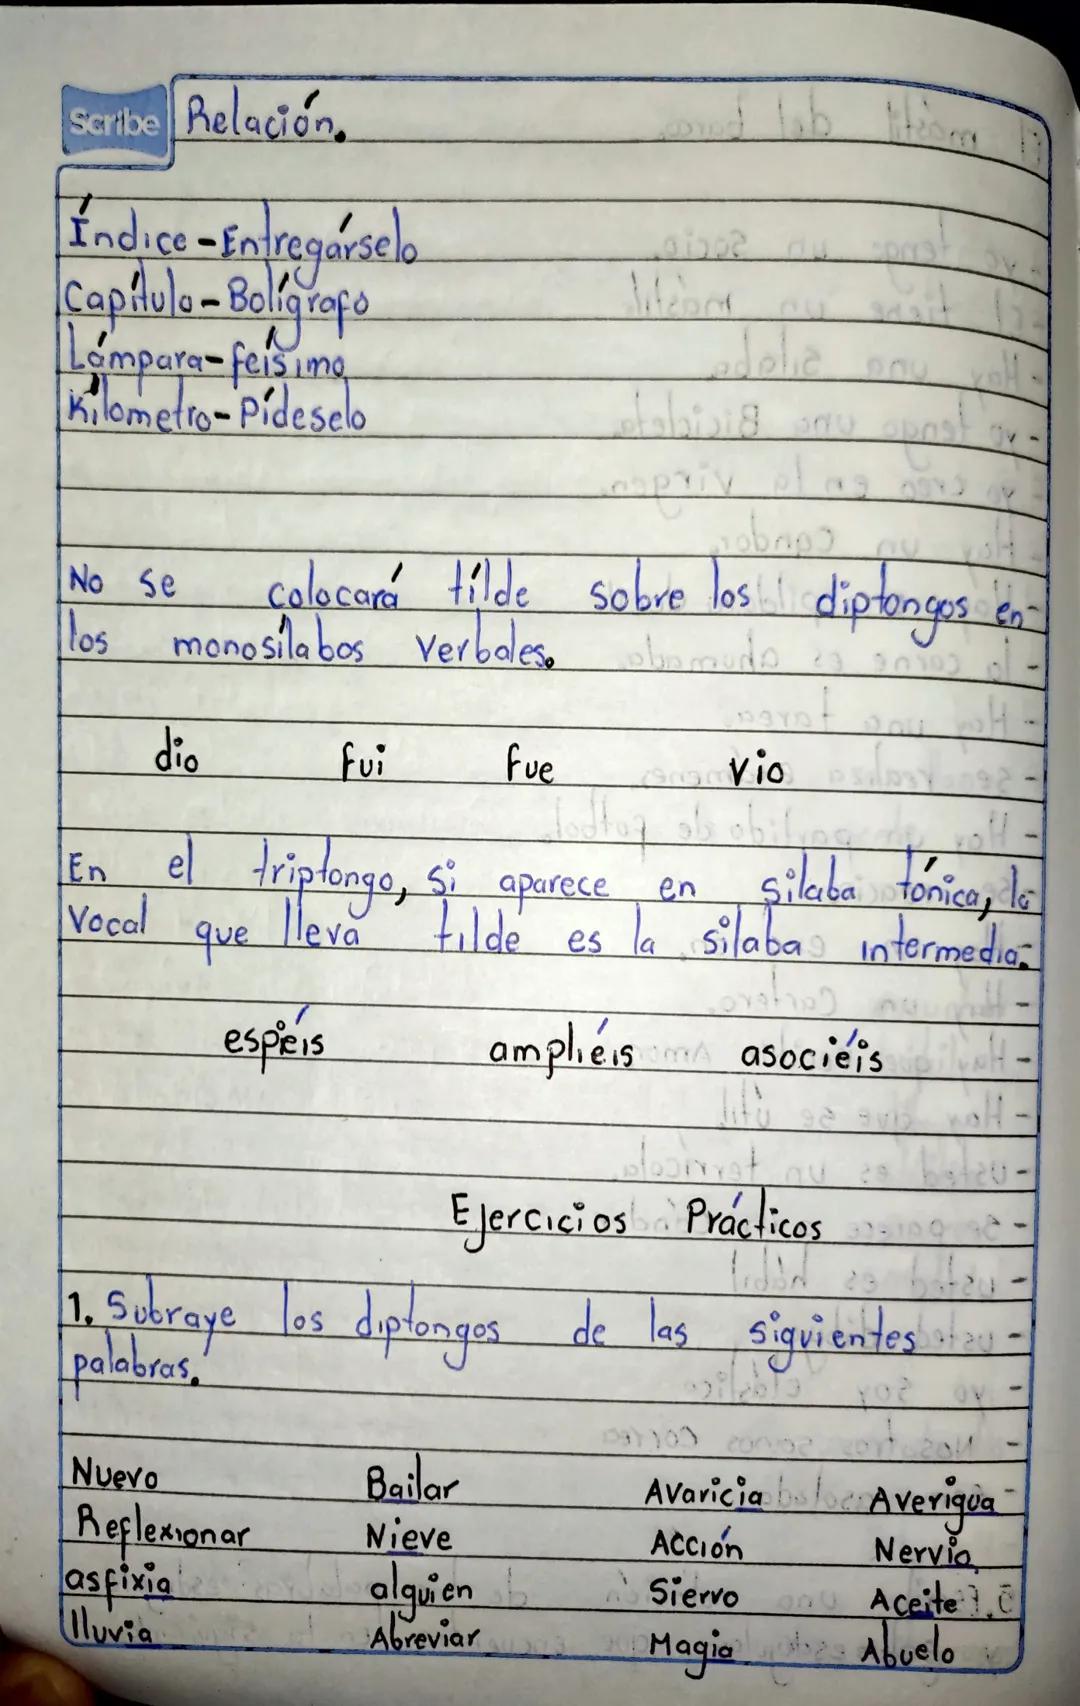 Scribe Relación.
Índice - Entregárselo
Capítulo - Bolígrafo
Lámpara - feísimo
Kílometro - Pídeselo
No se colocará tílde sobre los diptongos en
los monosílabos verbales.
dio fui fue vio
En el triptongo, si aparece en silaba tónica, la
vocal que lleva tilde es la silaba intermedia.
espiéis ampliéis asociéis
Ejercicios Prácticos
1. Subraye los diptongos de las siguientes
palabras.
Nuevo Bailar Avaricia Averigua
Reflexionar Nieve Acción Nervio
asfixia alguien Siervo Aceite
lluvia Abreviar Magia Abuelo